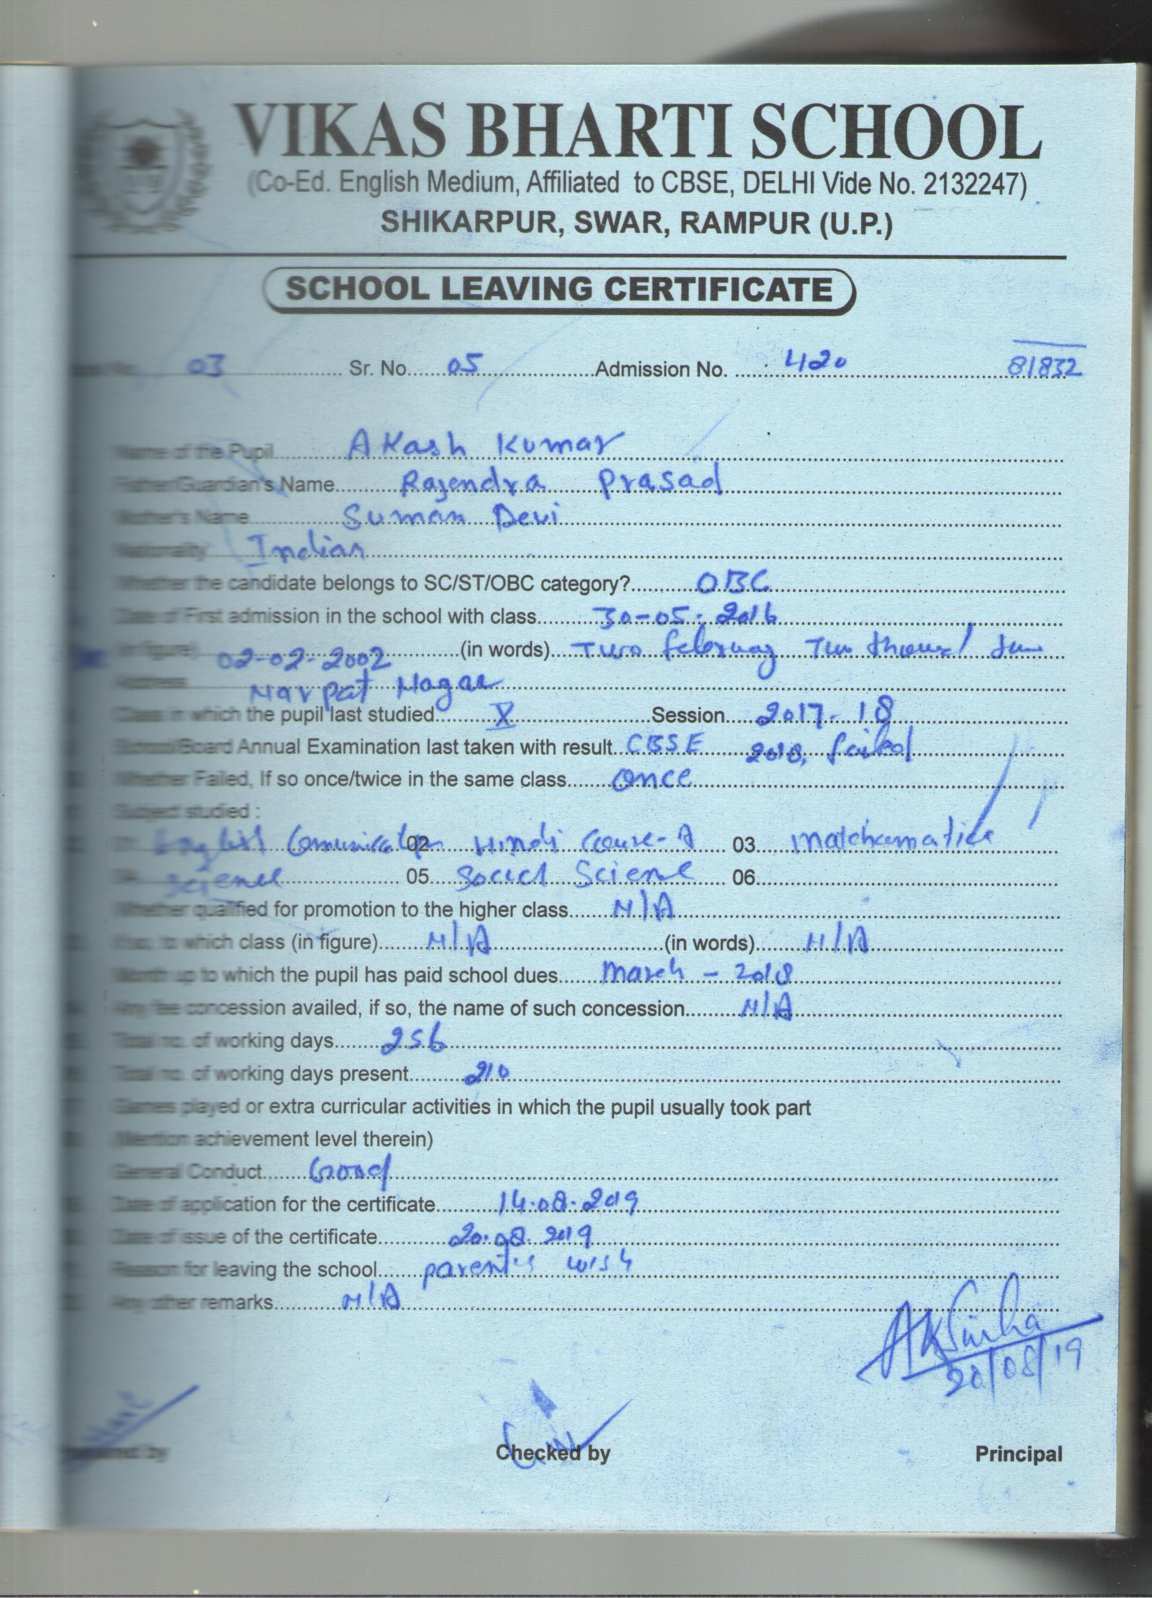 VIKAS BHARTI SCHOOL
(Co-Ed. English Medium, Affiliated to CBSE, DELHI Vide No. 2132247)
SHIKARPUR, SWAR, RAMPUR (U.P.)
SCHOOL LEAVING CERTIFICATE
03 Sr. No. 05 Admission No. 420 81832
Name of the Pupil Akash Kumar
Father/Guardian's Name Rajendra Prasad
Mother's Name Suman Devi
Nationality Indian
Whether the candidate belongs to SC/ST/OBC category? OBC
Date of First admission in the school with class 30-05-2016
(in figure) 02-02-2002 (in words) Two February Two thousand two
Address Narpat Nagar
Class in which the pupil last studied X Session 2017-18
School/Board Annual Examination last taken with result CBSE 2018, failed
Whether Failed, If so once/twice in the same class Once
Subject studied :
01 English Comunication 02 Hindi Course-A 03. Mathematics
04 Science 05 Social Science 06
Whether qualified for promotion to the higher class N/A
If so, to which class (in figure) N/A (in words) N/A
Month up to which the pupil has paid school dues March - 2018
Any fee concession availed, if so, the name of such concession N/A
Total no. of working days 256
Total no. of working days present 210
Games played or extra curricular activities in which the pupil usually took part
(Mention achievement level therein)
General Conduct Good
Date of application for the certificate 14.08.2019
Date of issue of the certificate 20.08.2019
Reason for leaving the school parent's wish
Any other remarks N/A
AKSinha
20/08/19
Prepared by Checked by Principal